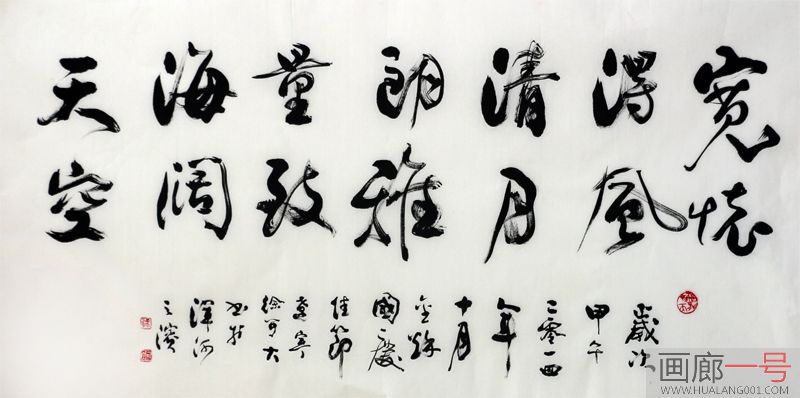 寬懷
得風
清月
朗雅
量致
海闊
天空
歲次
甲午
二零一四
年
十月
金秋
國慶
佳節
遼寧
徐可大
書於
渾河
之濱
画廊一号
WWW.HUALANG001.COM